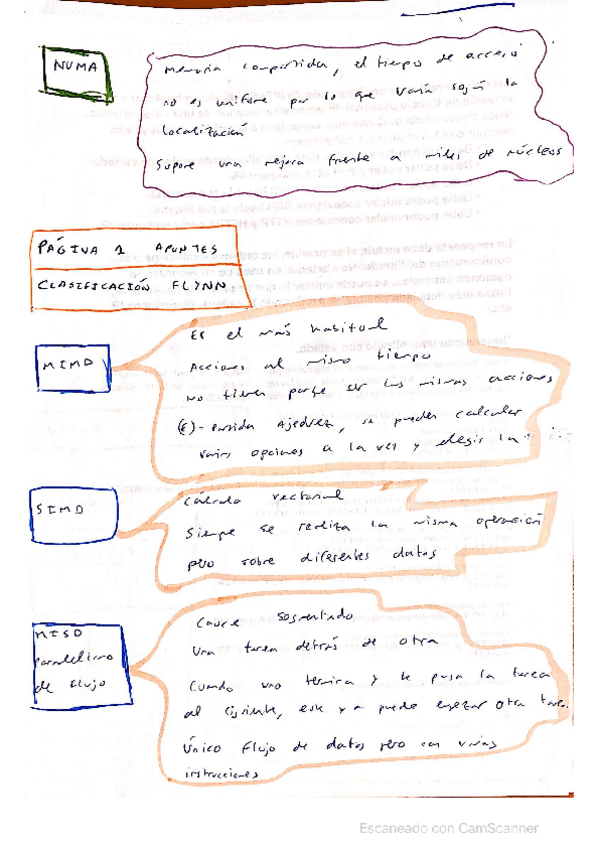 NUMA
Memoria compartida, el tiempo de acceso
no es uniforme por lo que varía según la
localización
Supone una mejora frente a miles de núcleos
PÁGINA 1 APUNTES
CLASIFICACIÓN FLYNN
MIMD
Es el más habitual
Acciones al mismo tiempo
no tienen porque ser las mismas acciones
Ej- partida Ajedrez, se pueden calcular
varias opciones a la vez y elegir la
SIMD
Cálculo vectorial
Siempre se realiza la misma operación
pero sobre diferentes datos
MISD
paralelismo
de flujo
Cauce segmentado
Una tarea detrás de otra
Cuando uno termina y le pasa la tarea
al siguiente, este ya puede empezar otra tarea.
Único flujo de datos pero con varias
instrucciones
Escaneado con CamScanner